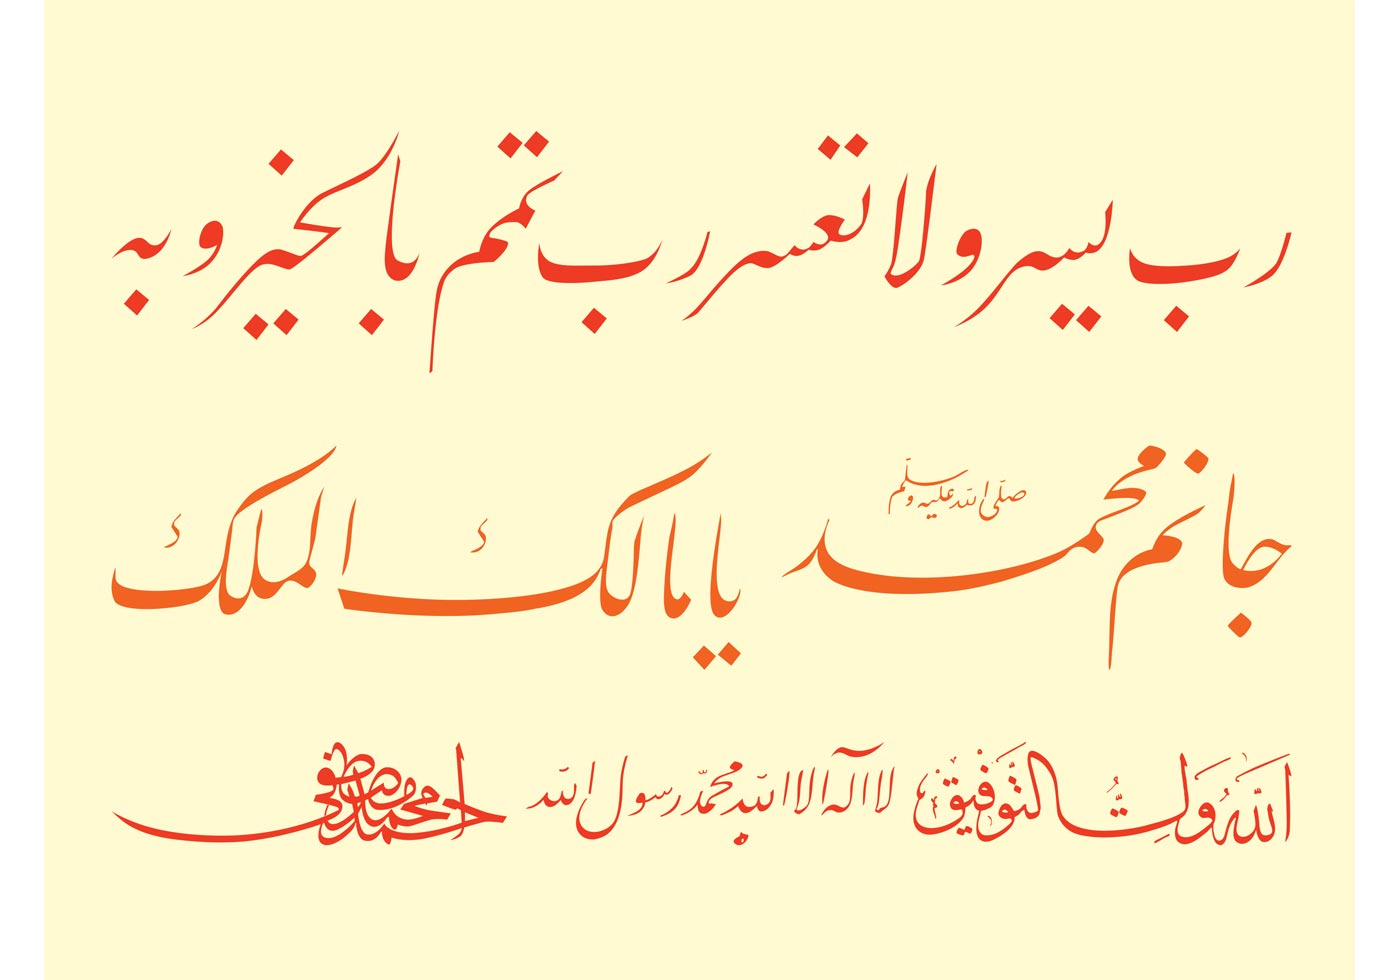 رب يسر ولا تعسر رب تمم بالخير وبه
جانم محمد صلّى الله عليه وسلّم يا مالك الملك
اَللّٰهُ وَلِيُّ التَّوْفِيْقِ لا اله الا الله محمّد رسول الله احمد محمد مصطفى